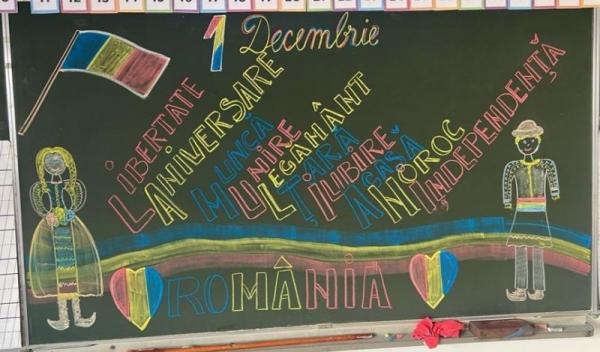 1 Decembrie
LIBERTATE
ANIVERSARE
MUNCĂ
UNIRE
LEGAMÂNT
ȚARĂ
IUBIRE
ACASĂ
NOROC
INDEPENDENȚĂ
ROMÂNIA